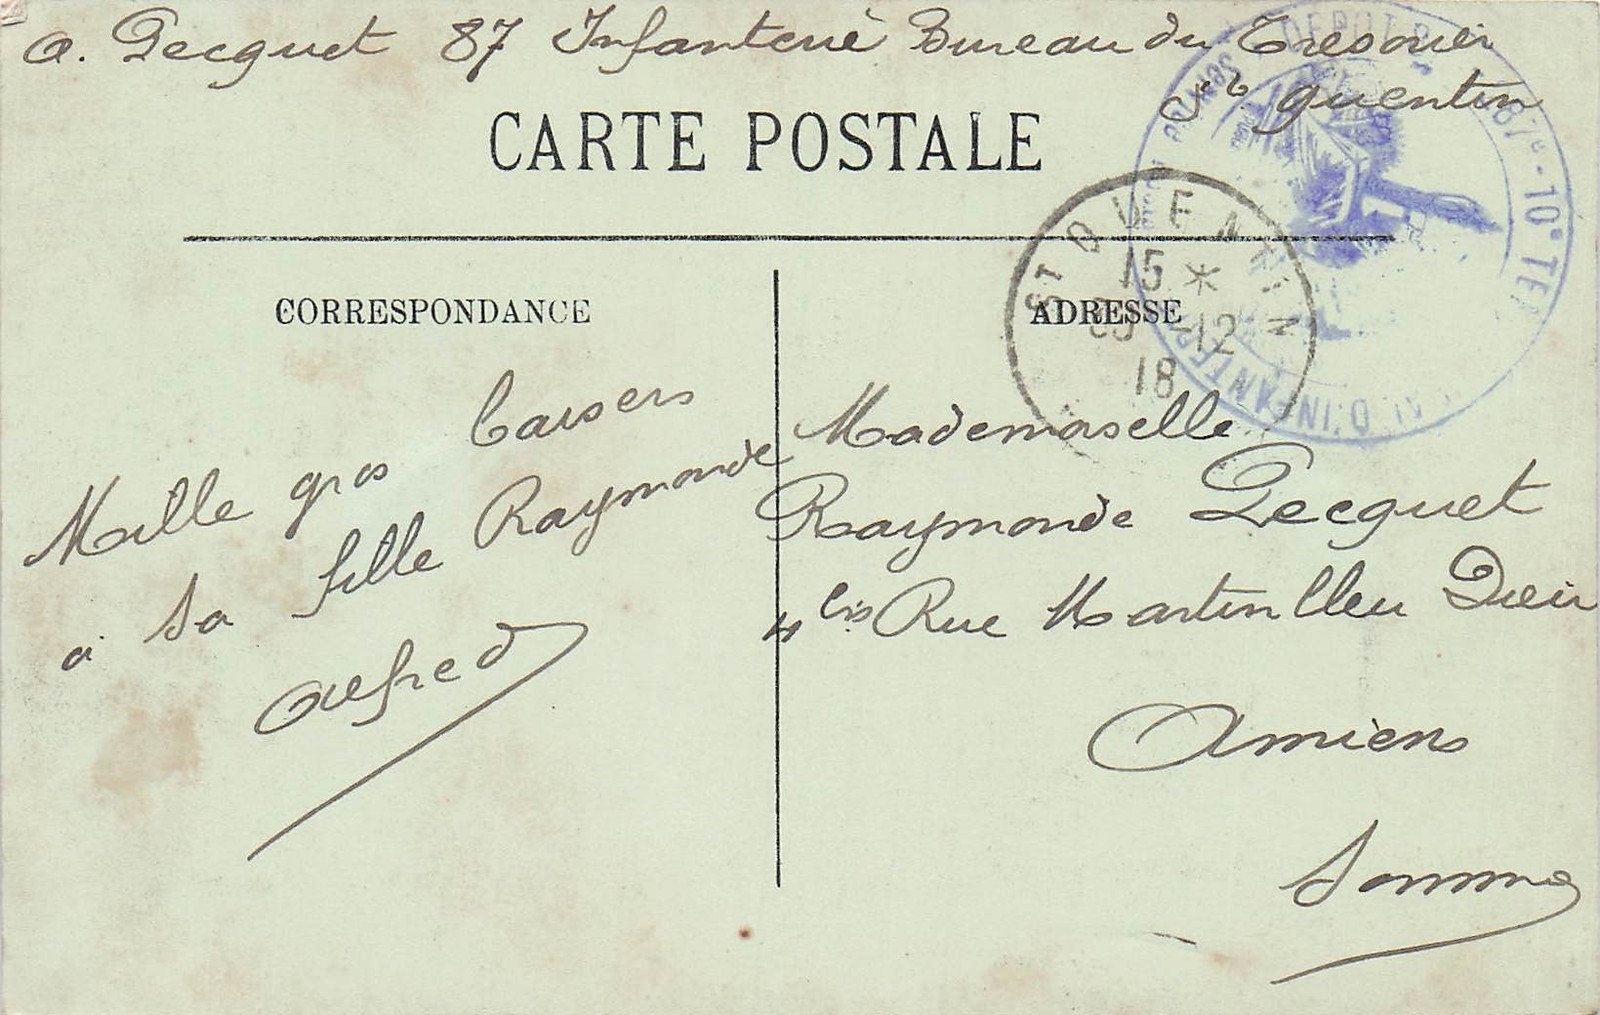 A. Pecquet 87 Infanterie Bureau du Tresorier
St quentin
CARTE POSTALE
ST QUENTIN
15 *
-12
18
CORRESPONDANCE
ADRESSE
Mille gros baisers
a sa fille Raymonde
Alfred
Mademoiselle
Raymonde Pecquet
4 bis Rue Martin Bleu Dieu
Amiens
Somme